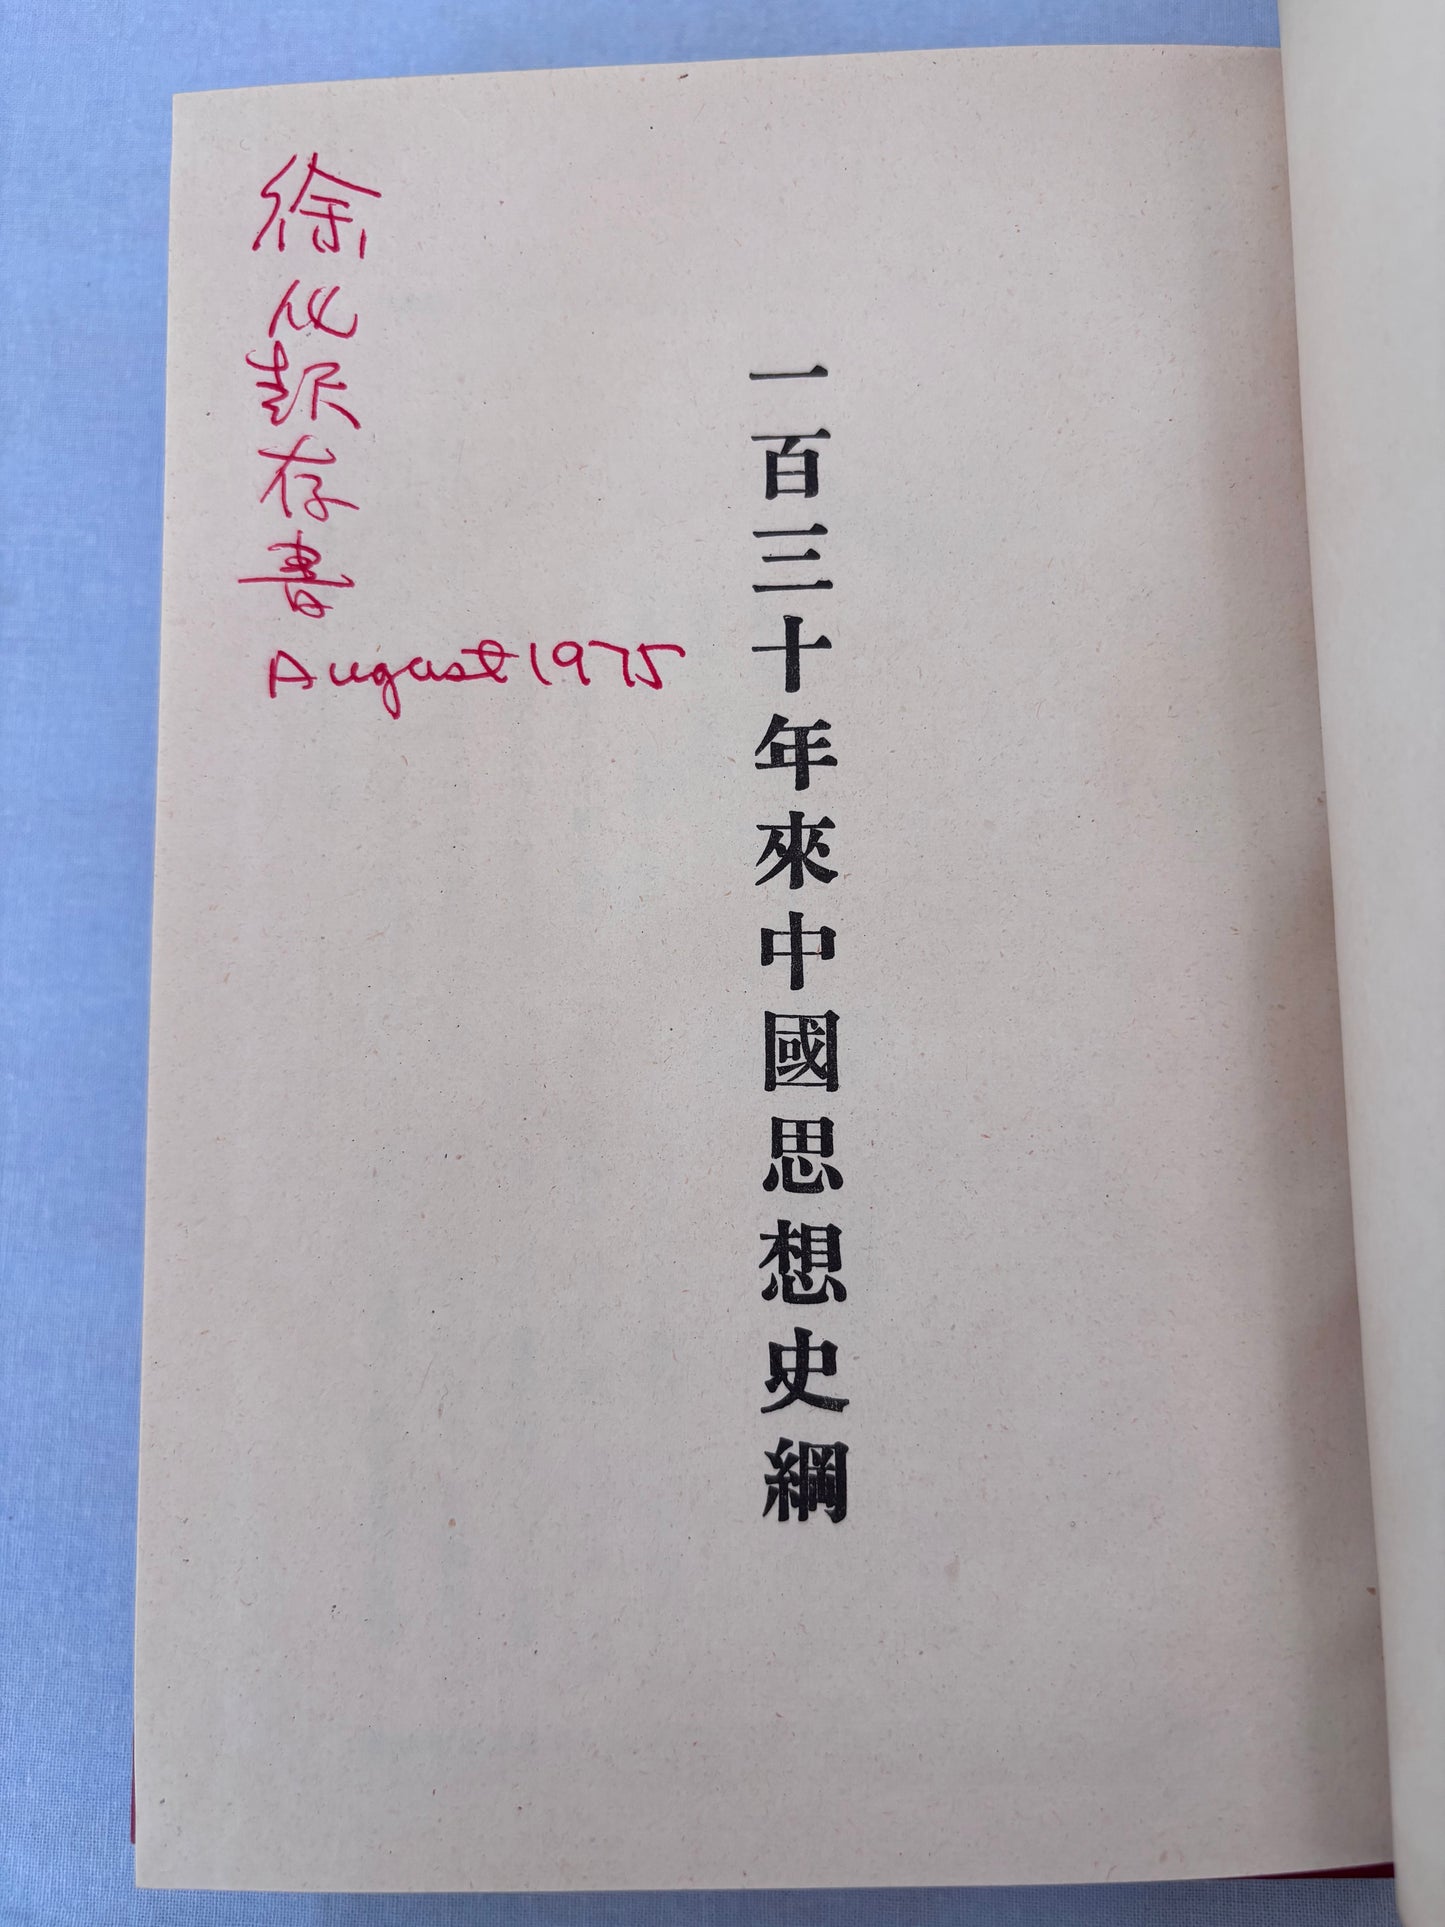 一百三十年來中國思想史綱
徐存書
August 1975